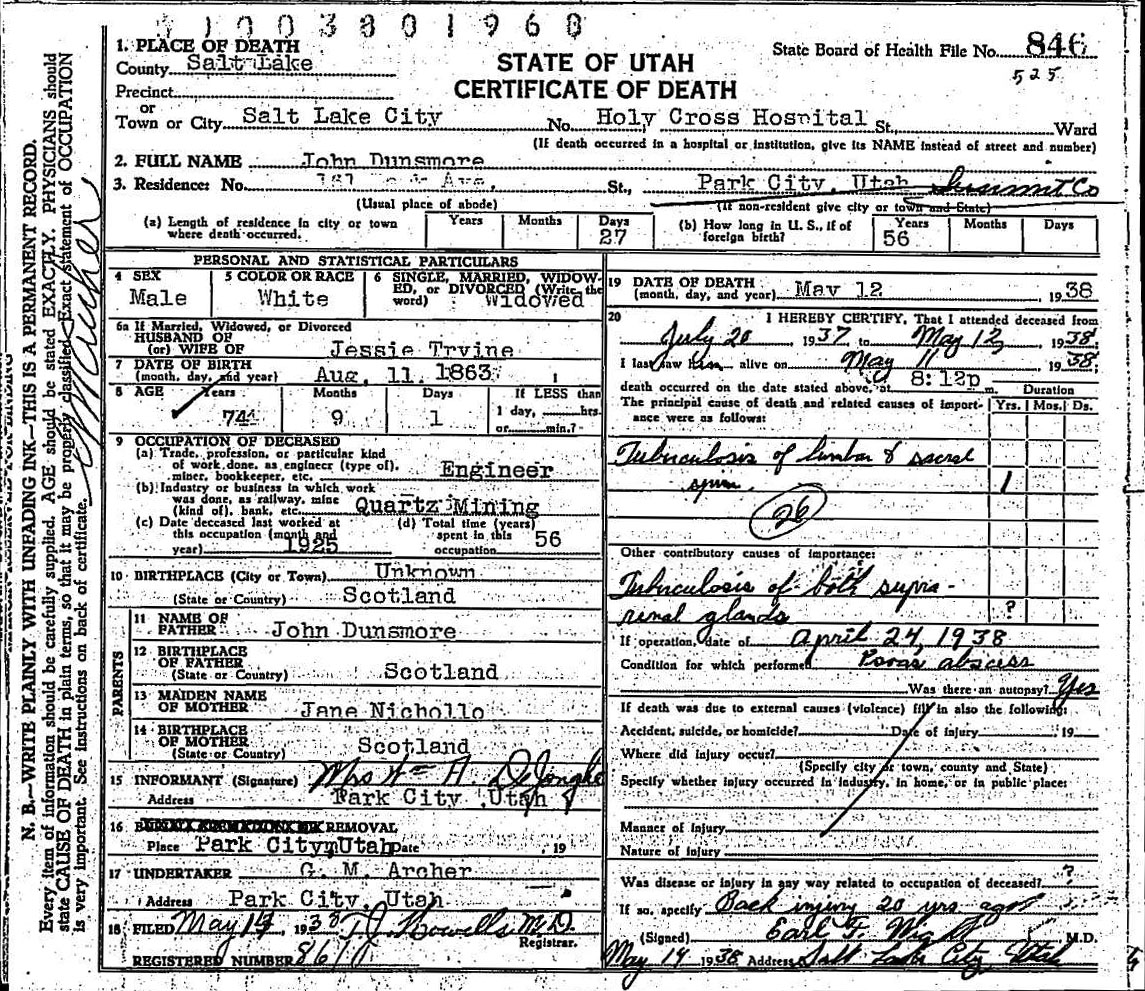 1003801960
1. PLACE OF DEATH
County Salt Lake
STATE OF UTAH
CERTIFICATE OF DEATH
State Board of Health File No. 846
525
Precinct
or
Town or City Salt Lake City No. Holy Cross Hospital St., Ward
(If death occurred in a hospital or institution, give its NAME instead of street and number)
2. FULL NAME John Dunsmore
3. Residence: No. Ave, St., Park City, Utah Summit Co
(Usual place of abode) (If non-resident give city or town and State)
(a) Length of residence in city or town where death occurred. Years Months Days 27
(b) How long in U. S., if of foreign birth? Years 56 Months Days
PERSONAL AND STATISTICAL PARTICULARS
4 SEX Male
5 COLOR OR RACE White
6 SINGLE, MARRIED, WIDOWED, OR DIVORCED (Write the word) Widowed
6a If Married, Widowed, or Divorced
HUSBAND OF
(or) WIFE OF Jessie Irvine
7 DATE OF BIRTH
(month, day, and year) Aug. 11 1863
8 AGE Years 74 Months 9 Days 1 If LESS than 1 day, hrs. or min.?
9 OCCUPATION OF DECEASED
(a) Trade, profession, or particular kind
of work done, as engineer (type of),
miner, bookkeeper, etc. Engineer
(b) Industry or business in which work
was done, as railway, mine
(kind of), bank, etc. Quartz Mining
(c) Date deceased last worked at
this occupation (month and
year) 1925
(d) Total time (years)
spent in this
occupation 56
10 BIRTHPLACE (City or Town) Unknown
(State or Country) Scotland
PARENTS
11 NAME OF
FATHER John Dunsmore
12 BIRTHPLACE
OF FATHER
(State or Country) Scotland
13 MAIDEN NAME
OF MOTHER Jane Nichollo
14 BIRTHPLACE
OF MOTHER
(State or Country) Scotland
15 INFORMANT (Signature) Mrs Wm A. DeJonghe
Address Park City, Utah
16 REMOVAL
Place Park City, Utah Date , 19
17 UNDERTAKER G. M. Archer
Address Park City, Utah
18 FILED May 1938 M.D.
Registrar.
REGISTERED NUMBER
19 DATE OF DEATH
(month, day, and year) May 12 1938
20 I HEREBY CERTIFY, That I attended deceased from
July 20 1937 to May 12, 1938.
I last saw him alive on May 11 1938;
death occurred on the date stated above, at 8:12p m.
Duration
The principal cause of death and related causes of importance were as follows: Yrs. Mos. Ds.
Tuberculosis of lumbar & sacral
spine 1
26
Other contributory causes of importance:
Tuberculosis of both supra-
renal glands ?
If operation, date of April 24, 1938
Condition for which performed Psoas abscess
Was there an autopsy? Yes
If death was due to external causes (violence) fill in also the following:
Accident, suicide, or homicide? Date of injury 19
Where did injury occur?
(Specify city or town, county and State)
Specify whether injury occurred in industry, in home, or in public place:
Manner of injury
Nature of injury
Was disease or injury in any way related to occupation of deceased? ?
If so, specify Back injury 20 yrs ago
(Signed) Earl F. M.D.
May 14 1938 Address Salt Lake City, Utah
N. B.—WRITE PLAINLY WITH UNFADING INK—THIS IS A PERMANENT RECORD.
Every item of information should be carefully supplied. AGE should be stated EXACTLY. PHYSICIANS should
state CAUSE OF DEATH in plain terms, so that it may be properly classified. Exact statement of OCCUPATION
is very important. See instructions on back of certificate.